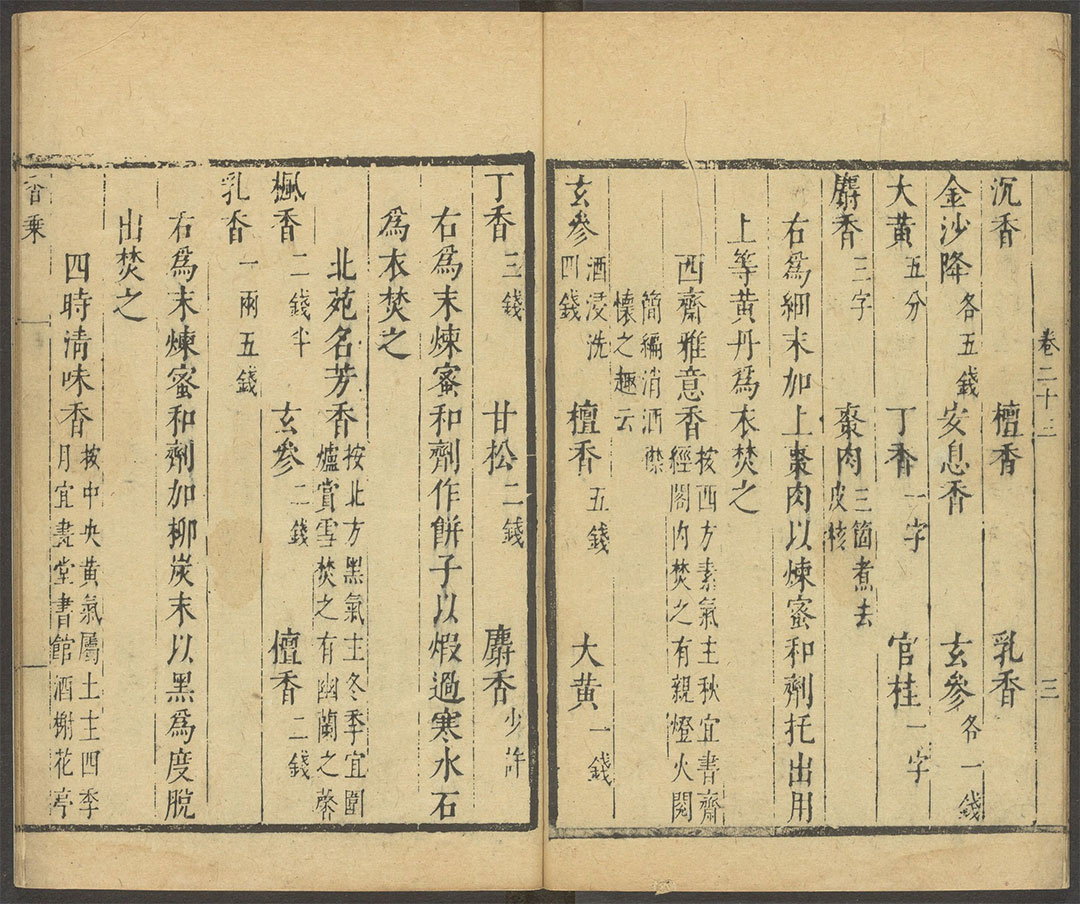 卷二十三 三
沉香 檀香 乳香
金沙降各五錢 安息香 玄參各一錢
大黃五分 丁香一字 官桂一字
麝香三字 棗肉三箇煮去皮核
右爲細末加上棗肉以煉蜜和劑托出用
上等黃丹爲衣焚之
西齋雅意香按西方素氣主秋宜書齋經閣內焚之有親燈火閱
簡編消洒襟懷之趣云
玄參酒浸洗四錢 檀香五錢 大黃一錢
丁香三錢 甘松二錢 麝香少許
右爲末煉蜜和劑作餅子以煆過寒水石
爲衣焚之
北苑名芳香按北方黑氣主冬季宜圍爐賞雪焚之有幽蘭之馨
楓香二錢半 玄參二錢 檀香二錢
乳香一兩五錢
右爲末煉蜜和劑加柳炭末以黑爲度脫
出焚之
四時清味香按中央黃氣屬土主四季月宜畫堂書館酒榭花亭
香乗